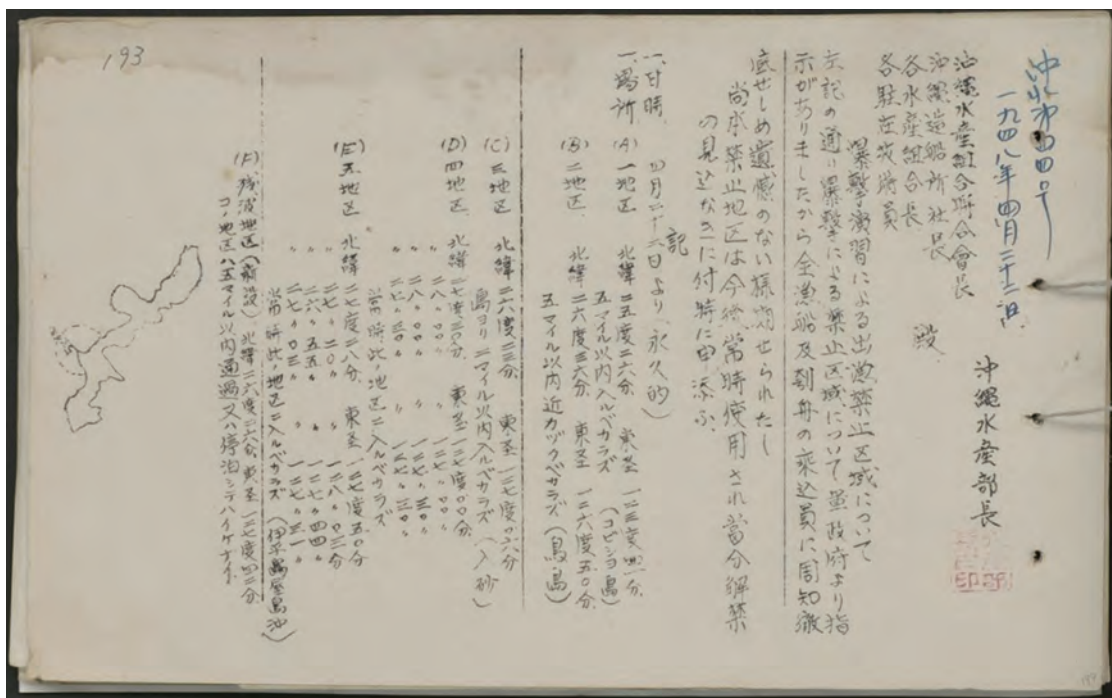 沖水第四四号
一九四八年四月二十二日
沖縄水産部長
沖縄水産組合聯合會長
沖縄造船所社長
各水産組合長
各駐在武場員
殿
爆撃演習による出漁禁止区域について
左記の通り爆撃による禁止区域について軍政府より指
示がありましたから全漁船及刳舟の乗込員に周知徹
底せしめ遺憾のない様期せられたし
尚本禁止地区は今後常時使用され當分解禁
の見込なきに付特に申添ふ
記
一、日時 四月二十六日より(永久的)
一、場所 (A) 一地区 北緯 二五度二六分 東圣 一二三度四一分
五マイル以内入ルベカラズ (コビシヨ島)
(B) 二地区 北緯 二六度三六分 東圣 一二六度五〇分
五マイル以内近カヅクベカラズ (鳥島)
(C) 三地区 北緯 二六度二三分 東圣 一二七度〇六分
島ヨリ二マイル以内入ルベカラズ (入砂)
(D) 四地区 北緯 二七度三〇分 東圣 一二七度〇〇分
〃 二八〃〇〇〃 〃 一二七〃〇〃
〃 二八〃〇〇〃 〃 一二七〃三〇〃
〃 二七〃三〇〃 〃 一二七〃三〇〃
常時此ノ地区ニ入ルベカラズ
(E) 五地区 北緯 二七度一八分 東圣 一二七度五〇分
〃 二七〃二〇〃 〃 一二八〃〇三分
〃 二六〃五五〃 〃 一二七〃四四〃
〃 二七〃〇三〃 〃 一二七〃三一〃
常時此ノ地区ニ入ルベカラズ (伊平島屋島沖)
(F) 残波地区(新設) 北緯 二六度二六分 東圣 一二七度四二分
コノ地区ハ五マイル以内通過又ハ停泊シテハイケナイ
193